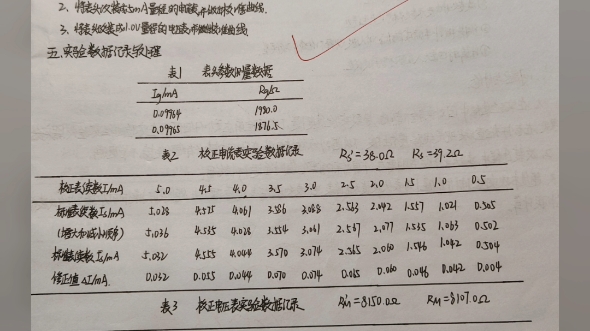 2. 将表头改装成5mA量程的电流表,并做校正曲线.
3. 将表头改装成1.0V量程的电压表,并做校正曲线
五.实验数据记录与处理
表1 表头参数测量数据
Ig/mA Rg/Ω
0.09954 1980.0
0.09965 1876.5
表2 校正电流表实验数据记录 Rs'=38.0Ω Rs=39.2Ω
校正表读数I/mA 5.0 4.5 4.0 3.5 3.0 2.5 2.0 1.5 1.0 0.5
标准表读数Is/mA 5.028 4.575 4.061 3.586 3.088 2.563 2.042 1.557 1.021 0.505
(增大和减小顺序) 5.036 4.535 4.028 3.554 3.061 2.567 2.077 1.535 1.063 0.502
标准表读数Is/mA 5.032 4.555 4.044 3.570 3.074 2.565 2.060 1.546 1.042 0.504
修正值ΔI/mA 0.032 0.055 0.044 0.070 0.074 0.065 0.060 0.046 0.042 0.004
表3 校正电压表实验数据记录 RM'=8150.0Ω RM=8107.0Ω